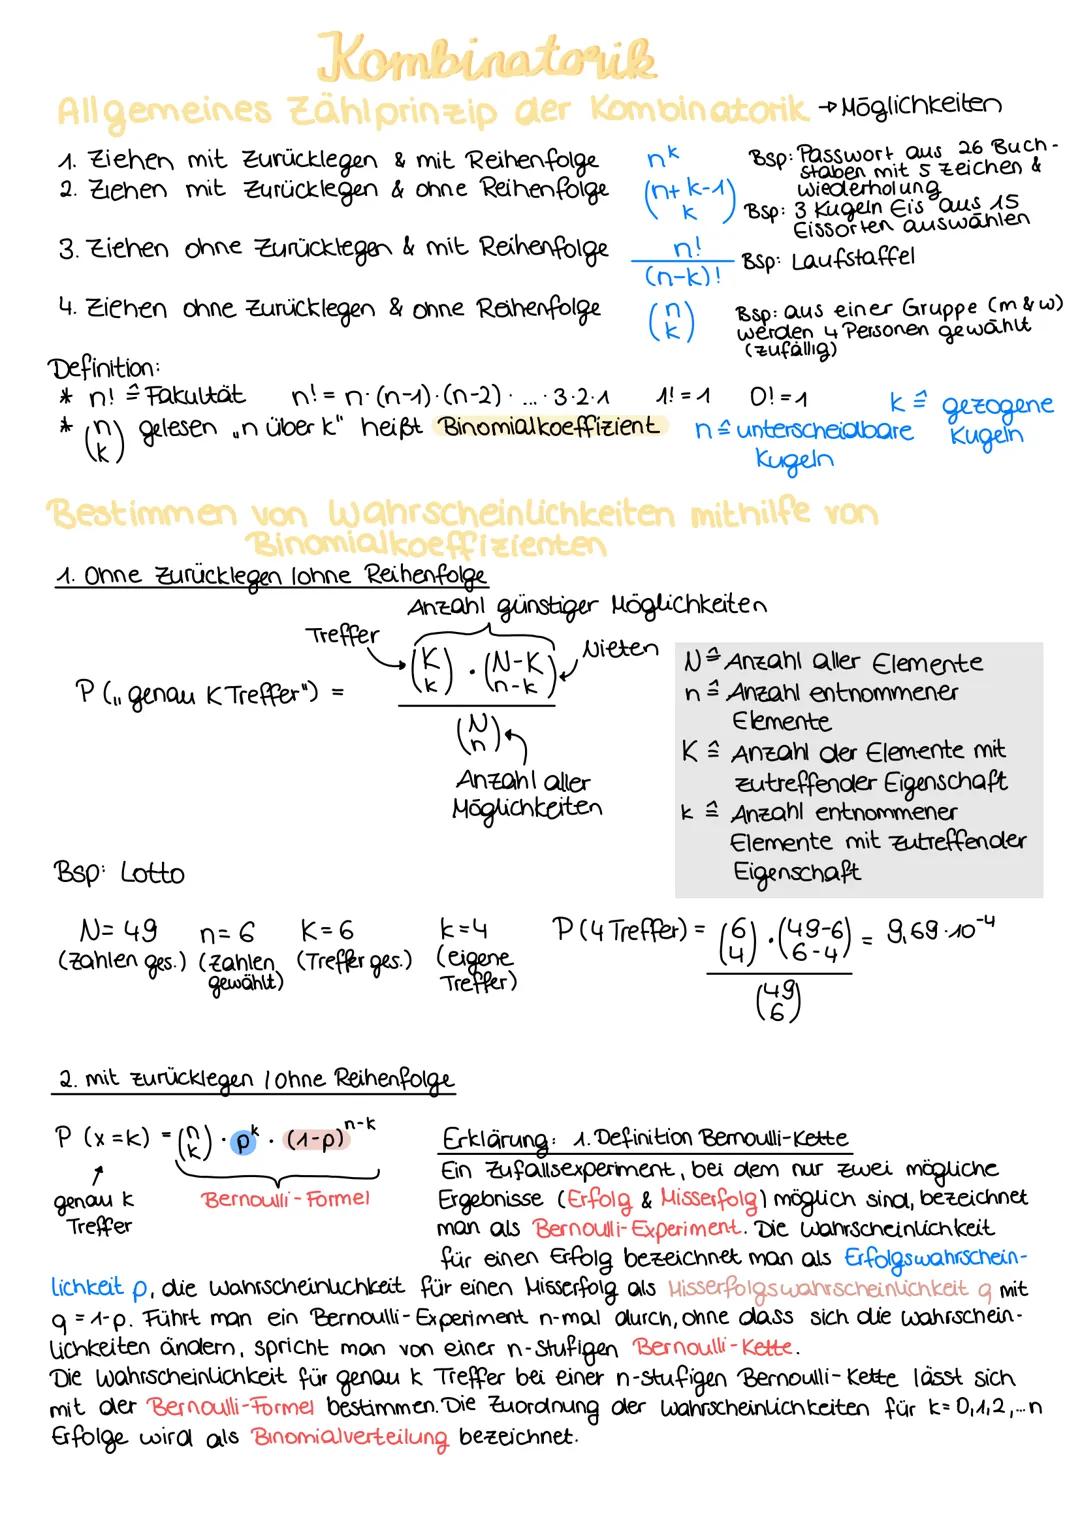 Kombinatorik
Allgemeines Zählprinzip der Kombinatorik → Möglichkeiten
1. Ziehen mit Zurücklegen & mit Reihenfolge n^k Bsp: Passwort aus 26 Buch-
staben mit 5 Zeichen &
wiederholung
2. Ziehen mit Zurücklegen & ohne Reihenfolge (n+k-1 über k) Bsp: 3 Kugeln Eis aus 15
Eissorten auswählen
3. Ziehen ohne Zurücklegen & mit Reihenfolge n!/(n-k)! Bsp: Laufstaffel
4. Ziehen ohne Zurücklegen & ohne Reihenfolge (n über k) Bsp: aus einer Gruppe (m & w)
werden 4 Personen gewählt
(zufällig)
Definition:
* n! ≙ Fakultät n! = n·(n-1)·(n-2)· ... ·3·2·1 1! = 1 0! = 1
* (n über k) gelesen „n über k" heißt Binomialkoeffizient
n ≙ unterscheidbare
Kugeln
k ≙ gezogene
Kugeln
Bestimmen von Wahrscheinlichkeiten mithilfe von
Binomialkoeffizienten
1. Ohne Zurücklegen / ohne Reihenfolge
Anzahl günstiger Möglichkeiten
Treffer
Nieten
P („genau K Treffer") = (K über k) · (N-K über n-k) / (N über n)
Anzahl aller
Möglichkeiten
N ≙ Anzahl aller Elemente
n ≙ Anzahl entnommener
Elemente
K ≙ Anzahl der Elemente mit
zutreffender Eigenschaft
k ≙ Anzahl entnommener
Elemente mit zutreffender
Eigenschaft
Bsp: Lotto
N = 49 n = 6 K = 6 k = 4
(Zahlen ges.) (Zahlen gewählt) (Treffer ges.) (eigene Treffer)
P (4 Treffer) = (6 über 4) · (49-6 über 6-4) / (49 über 6) = 9,69·10^-4
2. mit zurücklegen / ohne Reihenfolge
P (x = k) = (n über k) · p^k · (1-p)^n-k
genau k
Treffer
Bernoulli-Formel
Erklärung: 1. Definition Bernoulli-Kette
Ein Zufallsexperiment, bei dem nur zwei mögliche
Ergebnisse (Erfolg & Misserfolg) möglich sind, bezeichnet
man als Bernoulli-Experiment. Die Wahrscheinlichkeit
für einen Erfolg bezeichnet man als Erfolgswahrschein-
lichkeit p, die Wahrscheinlichkeit für einen Misserfolg als Misserfolgswahrscheinlichkeit q mit
q = 1-p. Führt man ein Bernoulli-Experiment n-mal durch, ohne dass sich die wahrschein-
lichkeiten ändern, spricht man von einer n-stufigen Bernoulli-Kette.
Die Wahrscheinlichkeit für genau k Treffer bei einer n-stufigen Bernoulli-Kette lässt sich
mit der Bernoulli-Formel bestimmen. Die Zuordnung der Wahrscheinlichkeiten für k = 0,1,2,...n
Erfolge wird als Binomialverteilung bezeichnet.